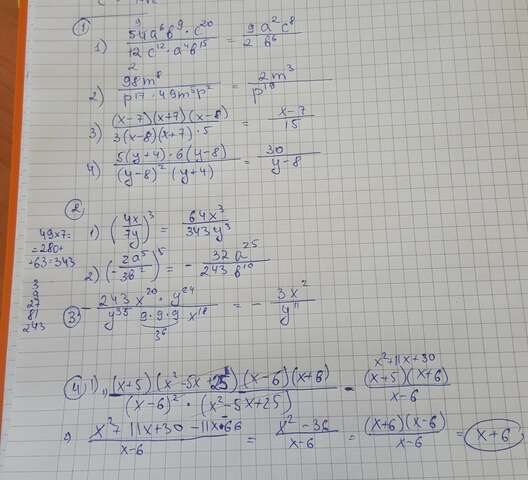 ①
1) 54a⁶b⁹·c²⁰ / 12c¹²·a⁴b¹⁵ = 9a²c⁸ / 2b⁶
9
2
2) 98m⁸ / p¹⁷·49m⁵p² = 2m³ / p¹⁹
3) (x-7)(x+7)(x-8) / 3(x-8)(x+7)·5 = x-7 / 15
4) 5(y+4)·6(y-8) / (y-8)²(y+4) = 30 / y-8
②
1) (4x / 7y)³ = 64x³ / 343y³
49×7=
=280+
+63=343
2) (-2a⁵ / 3b²)⁵ = -32a²⁵ / 243b¹⁰
3
9
27
81
243
③ -243x²⁰·y²⁴ / y³⁵ 9·9·9 x¹⁸ = -3x² / y¹¹
④ 1) (x+5)(x²-5x+25)(x-6)(x+6) / (x-6)²·(x²-5x+25) - (x+5)(x+6) / x-6
x²+11x+30
x²+11x+30-11x-66 / x-6 = x²-36 / x-6 = (x+6)(x-6) / x-6 = x+6